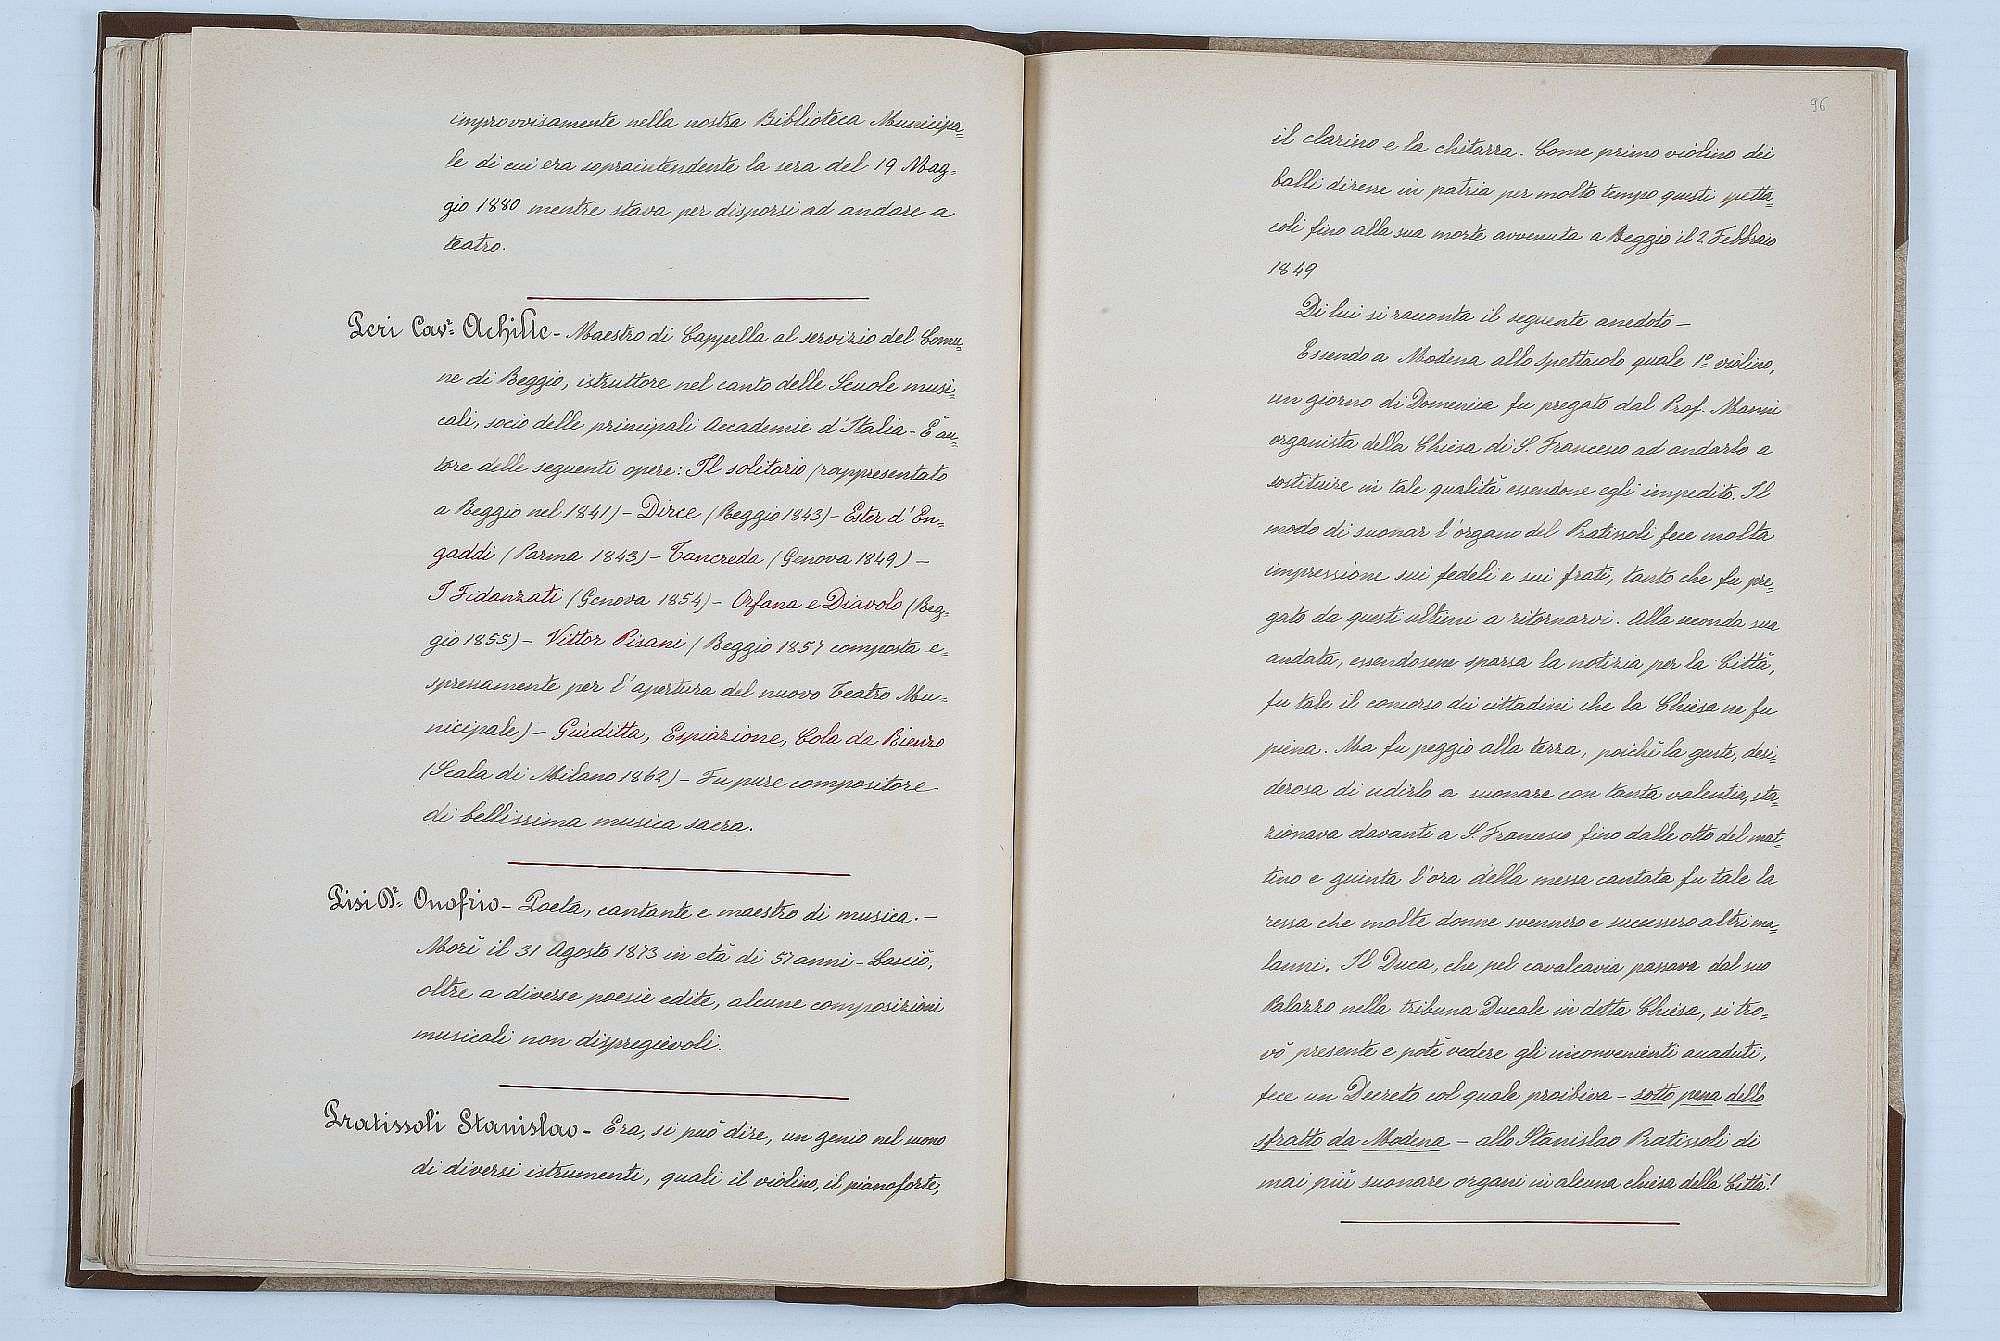 improvvisamente nella nostra Biblioteca Municipa=
le di cui era sopraintendente la sera del 19 Mag=
gio 1880 mentre stava per disporsi ad andare a
teatro.
Peri Cavr. Achille - Maestro di Cappella al servizio del Comu=
ne di Reggio, istruttore nel canto delle Scuole musi=
cali, socio delle principali Accademie d'Italia - È au=
tore delle seguenti opere: Il solitario (rappresentato
a Reggio nel 1841) - Dirce (Reggio 1843) - Ester d'En=
gaddi (Parma 1843) - Tancreda (Genova 1849) -
I Fidanzati (Genova 1854) - Orfana e Diavolo (Reg=
gio 1855) - Vittor Pisani (Reggio 1857 composta e=
spressamente per l'apertura del nuovo Teatro Mu=
nicipale) - Giuditta, Espiazione, Cola da Rienzo
(Scala di Milano 1862) - Fu pure compositore
di bellissima musica sacra.
Pisi Dr. Onofrio - Poeta, cantante e maestro di musica. -
Morì il 31 Agosto 1873 in età di 57 anni - Lasciò,
oltre a diverse poesie edite, alcune composizioni
musicali non dispregievoli.
Pratissoli Stanislao - Era, si può dire, un genio nel suono
di diversi istrumenti, quali il violino, il pianoforte,
96
il clarino e la chitarra. Come primo violino dei
balli diresse in patria per molto tempo questi spetta=
coli fino alla sua morte avvenuta a Reggio il 2 Febbraio
1849
Di lui si racconta il seguente anedoto -
Essendo a Modena allo spettacolo quale 1° violino,
un giorno di Domenica fu pregato dal Prof. Manni
organista della Chiesa di S. Francesco ad andarlo a
sostituire in tale qualità essendone egli impedito. Il
modo di suonar l'organo del Pratissoli fece molta
impressione sui fedeli e sui frati, tanto che fu pre=
gato da questi ultimi a ritornarvi. Alla seconda sua
andata, essendosene sparsa la notizia per la Città,
fu tale il concorso dei cittadini che la Chiesa ne fu
piena. Ma fu peggio alla terza, poichè la gente, desi=
derosa di udirlo a suonare con tanta valentia, sta=
zionava davanti a S. Francesco fino dalle otto del mat=
tino e giunta l'ora della messa cantata fu tale la
ressa che molte donne svennero e successero altri ma=
lanni. Il Duca, che pel cavalcavia passava dal suo
Palazzo nella tribuna Ducale in detta Chiesa, si tro=
vò presente e potè vedere gli inconvenienti accaduti,
fece un Decreto col quale proibiva - sotto pena dello
sfratto da Modena - allo Stanislao Pratissoli di
mai più suonare organi in alcuna chiesa della Città!